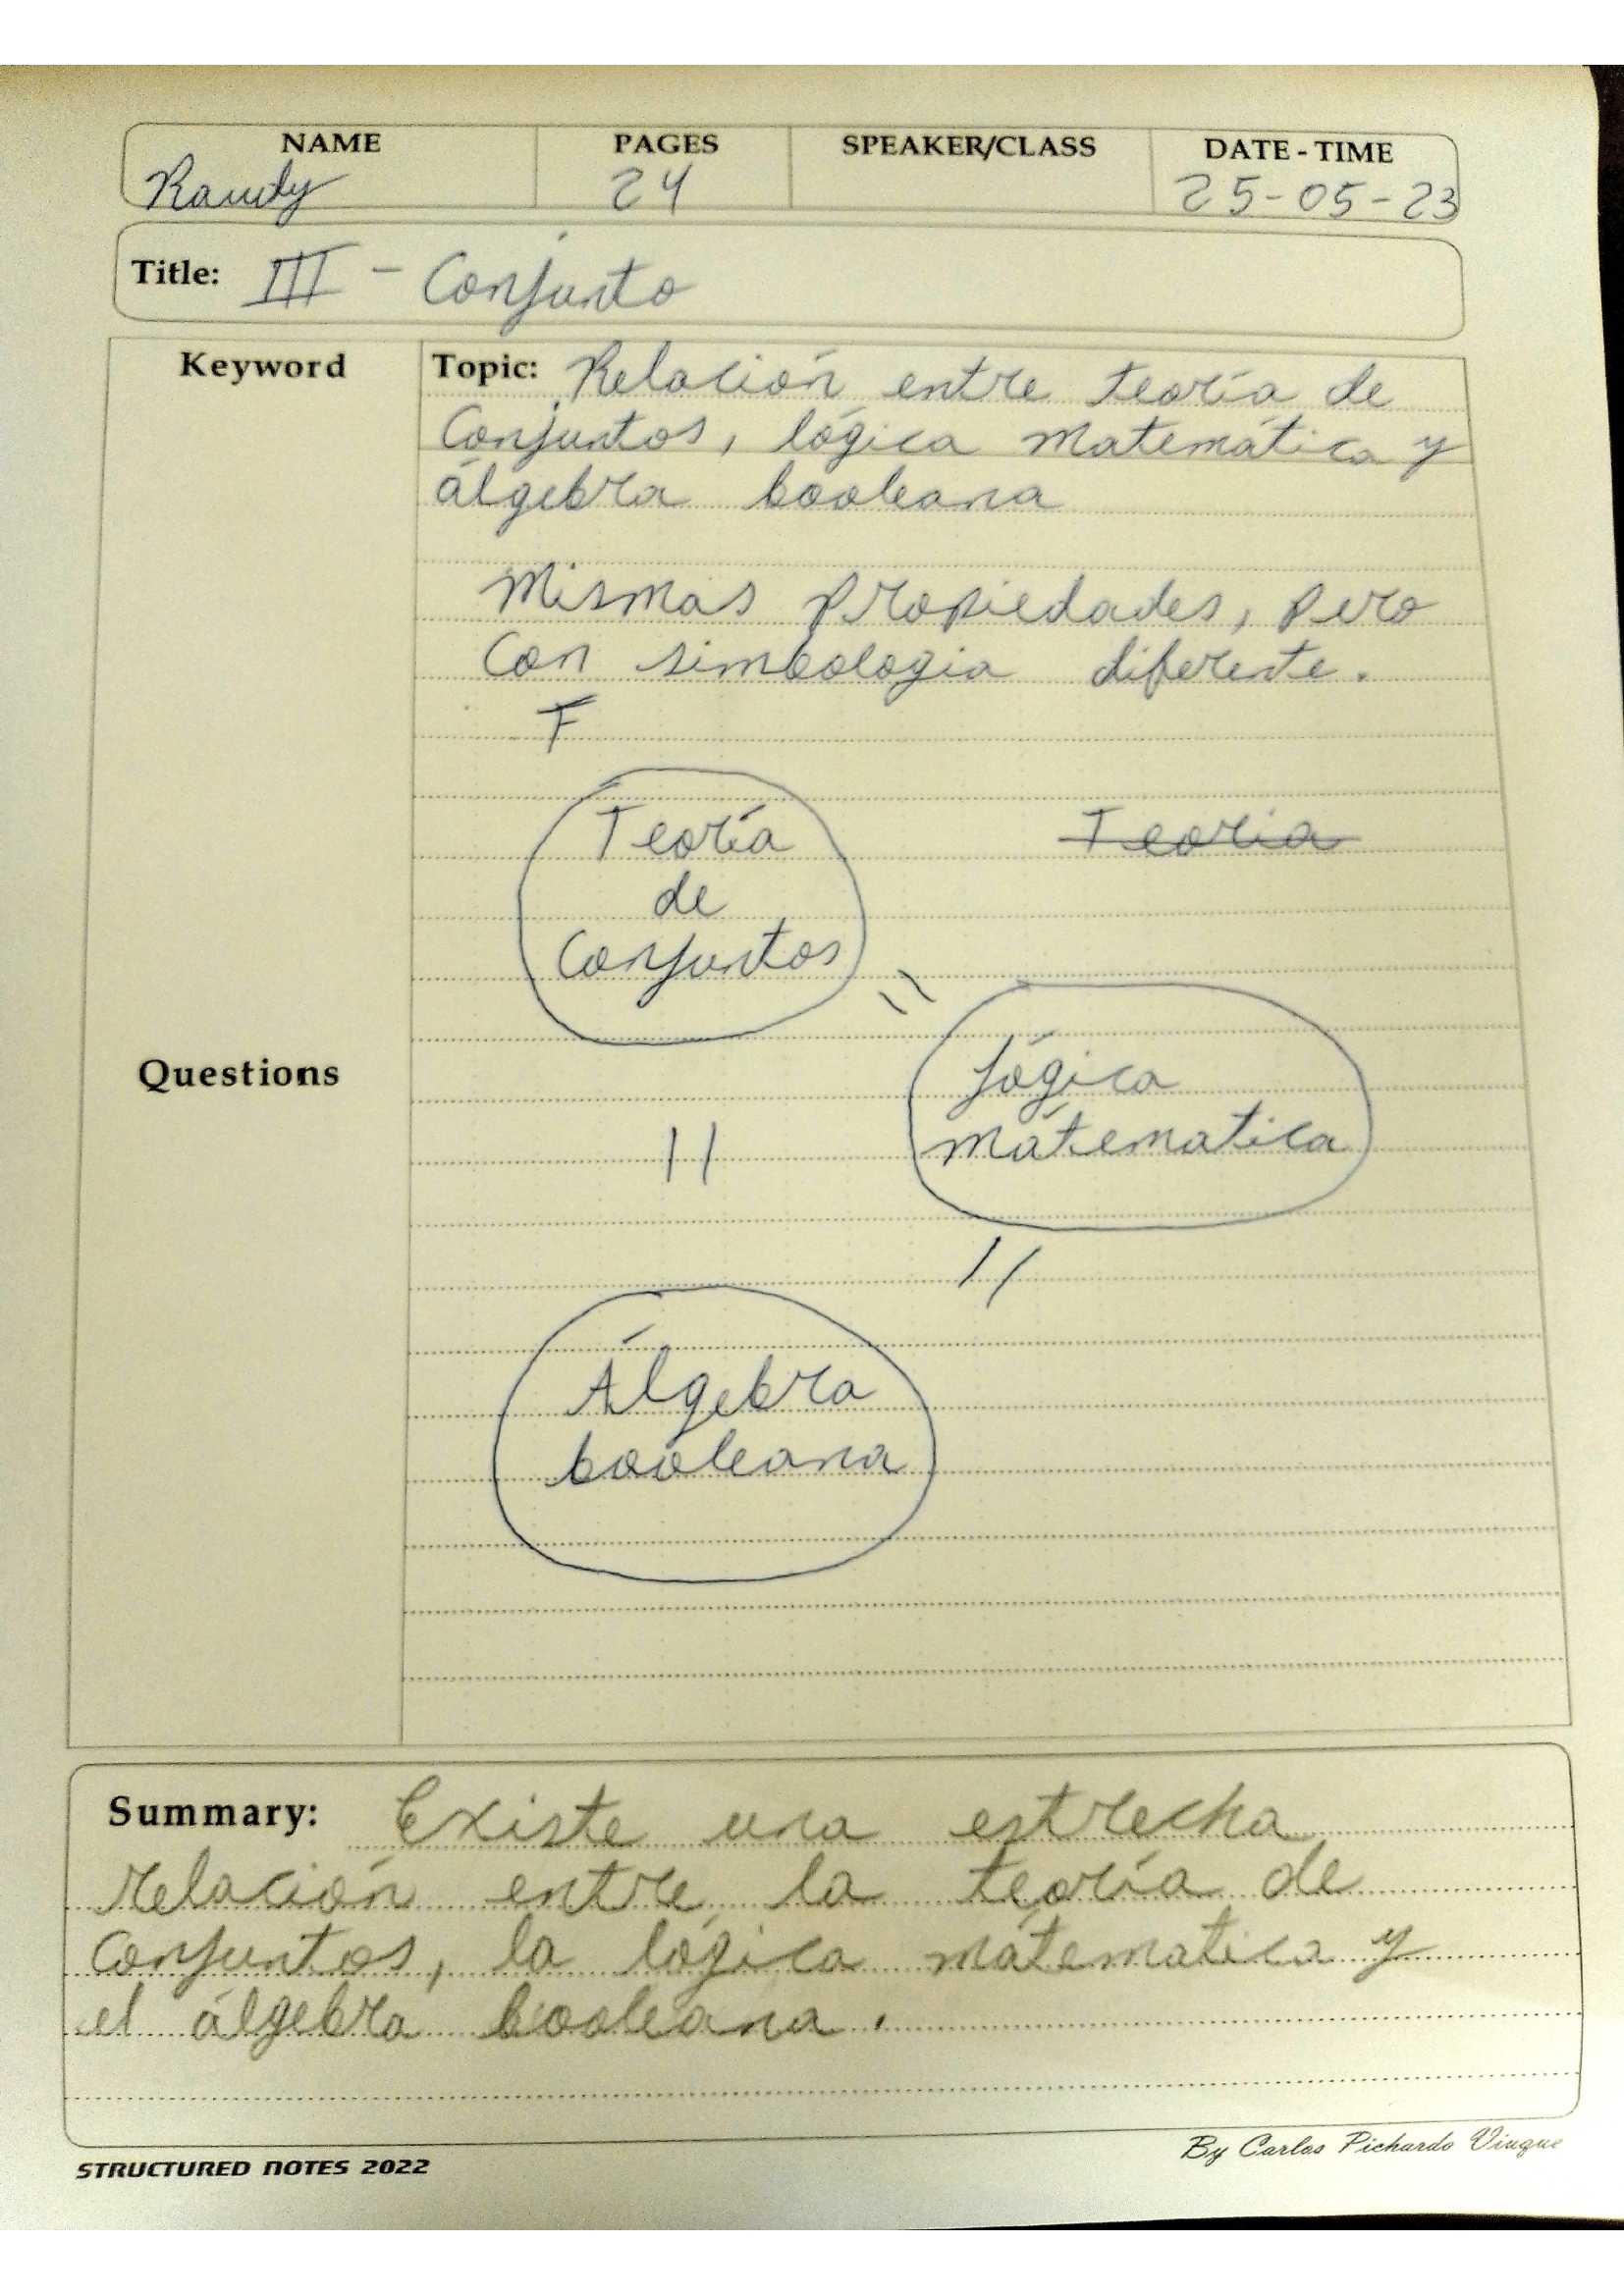 NAME PAGES SPEAKER/CLASS DATE - TIME
Randy 24 25-05-23
Title: III - Conjunto
Keyword
Topic: Relación entre teoría de
Conjuntos, lógica matemática y
álgebra booleana
Mismas propiedades, pero
con simbologia diferente.
F
Teoría
de
Conjuntos
Teoria
=
Lógica
mátematica
Questions
||
//
Álgebra
booleana
Summary: Existe una estrecha
relación entre la teoría de
conjuntos, la lógica mátematica y
el álgebra booleana.
STRUCTURED NOTES 2022
By Carlos Pichardo Viuque